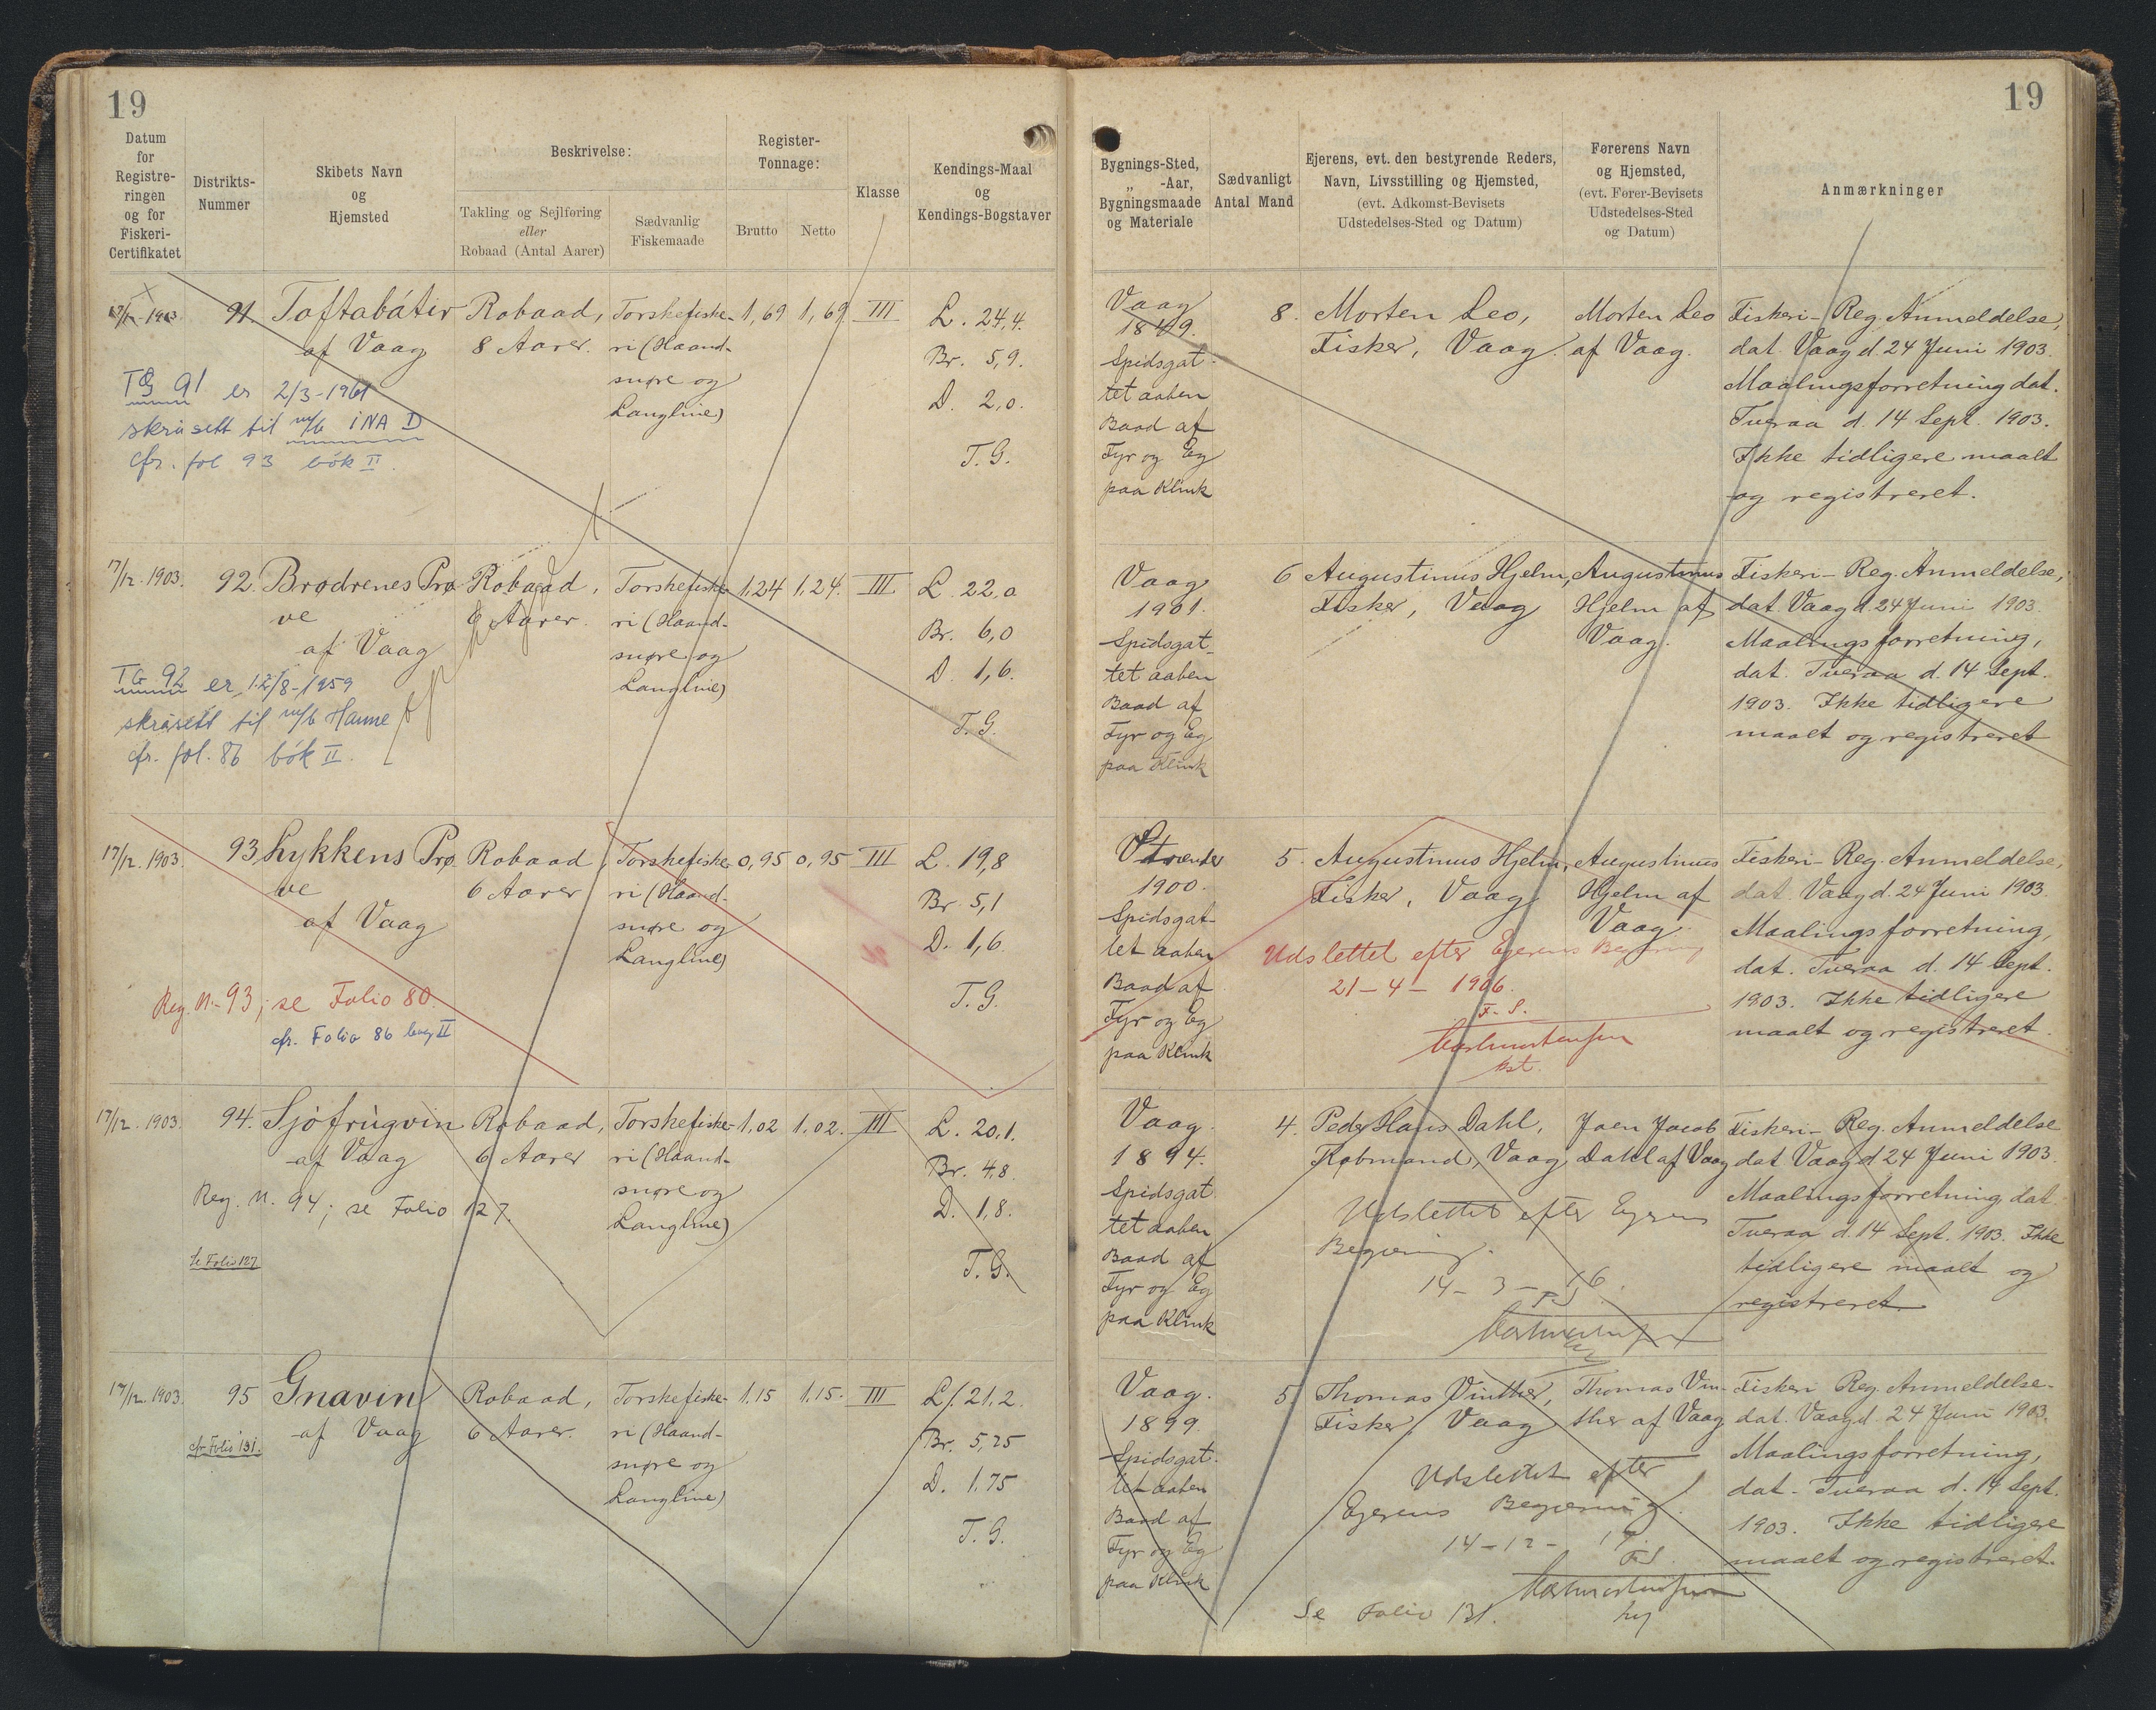 19
19
Datum
for
Registre-
ringen
og for
Fiskeri-
Certifikatet
Distrikts-
Nummer
Skibets Navn
og
Hjemsted
Beskrivelse:
Takling og Sejlføring
eller
Robaad (Antal Aarer)
Sædvanlig
Fiskemaade
Register-
Tonnage:
Brutto
Netto
Klasse
Kendings-Maal
og
Kendings-Bogstaver
Bygnings-Sted,
„ -Aar,
Bygningsmaade
og Materiale
Sædvanligt
Antal Mand
Ejerens, evt. den bestyrende Reders,
Navn, Livsstilling og Hjemsted,
(evt. Adkomst-Bevisets
Udstedelses-Sted og Datum)
Førerens Navn
og Hjemsted,
(evt. Fører-Bevisets
Udstedelses-Sted
og Datum)
Anmærkninger
17/12. 1903.
91.
Toftabátur
af Vaag
TG 91 er 2/3-1961
skrásett til m/b INA D
cfr. fol 93 bók II.
Robaad,
8 Aarer.
Torskefiske-
ri (Haand-
snøre og
Langline)
1,69
1,69
III
L. 24,4.
Br. 5,9.
D. 2,0.
T. G.
Vaag
1849.
Spidsgat-
tet aaben
Baad af
Fyr og Eg
paa Klink
8.
Morten Leo,
Fisker, Vaag.
Morten Leo
af Vaag.
Fiskeri-Reg. Anmeldelse,
dat. Vaag d. 24 Juni 1903.
Maalingsforretning dat.
Tveraa d. 14 Sept. 1903.
Ikke tidligere maalt
og registreret.
17/12. 1903.
92.
Brødrenes Prø-
ve
af Vaag
TG 92 er 12/8-1959
skrásett til m/b Hanne
cfr. fol. 86 bók II.
Robaad,
6 Aarer.
Torskefiske-
ri (Haand-
snøre og
Langline)
1,24
1,24.
III
L. 22,0
Br. 6,0
D. 1,6.
T. G.
Vaag
1901.
Spidsgat-
tet aaben
Baad af
Fyr og Eg
paa Klink
6
Augustinus Hjelm,
Fisker, Vaag
Augustinus
Hjelm af
Vaag.
Fiskeri-Reg. Anmeldelse,
dat. Vaag d. 24 Juni 1903.
Maalingsforretning,
dat. Tveraa d. 14 Sept.
1903. Ikke tidligere
maalt og registreret
17/12. 1903.
93.
Lykkens Prø-
ve
af Vaag
Reg. N.-93; se Folio 80.
cfr. Folio 86 bog II
Robaad,
6 Aarer
Torskefiske-
ri (Haand-
snøre og
Langline)
0,95
0,95
III
L. 19,8
Br. 5,1
D. 1,6.
T. G.
1900.
Spidsgat-
tet aaben
Baad af
Fyr og Eg
paa Klink
5.
Augustinus Hjelm,
Fisker, Vaag
Udslettet efter Ejerens Begjæring
21-4-1906.
F. S.
Augustinus
Hjelm af
Vaag.
Fiskeri-Reg. Anmeldelse,
dat. Vaag d. 24 Juni 1903.
Maalingsforretning,
dat. Tveraa d. 14 Sept.
1903. Ikke tidligere
maalt og registreret.
17/12. 1903.
94.
Sjófrúgvin
af Vaag
Reg. N. 94; se Folio 127.
Se Folio 127
Robaad,
6 Aarer
Torskefiske-
ri (Haand-
snøre og
Langline)
1,02
1,02.
III
L. 20,1.
Br. 4,8.
D. 1,8.
T. G.
Vaag.
1894.
Spidsgat
tet aaben
Baad af
Fyr og Eg
paa Klink
4.
Peder Hans Dahl,
Købmand, Vaag
Udslettet efter Ejerens
Begjæring.
14-3-16.
F S
Joen Jacob
Dahl af Vaag
Fiskeri-Reg. Anmeldelse
dat Vaag d 24 Juni 1903.
Maalingsforretning dat
Tveraa d. 14 Sept. 1903. Ikke
tidligere maalt og
registreret.
17/12. 1903.
95
Gnavin
af Vaag
cfr. Folio 131.
Robaad,
6 Aarer.
Torskefiske-
ri (Haand-
snøre og
Langline)
1,15
1,15.
III
L. 21,2.
Br. 5,25
D. 1,75
T. G.
Vaag.
1899.
Spidsgat-
tet aaben
Baad af
Fyr og Eg
paa Klink
5.
Thomas Vinther,
Fisker, Vaag
Udslettet efter
Ejerens Begjæring.
14-12-
F. S.
Se Folio 131.
Thomas Vin-
ther af Vaag
Fiskeri Reg. Anmeldelse-
dat. Vaag d. 24 Juni 1903.
Maalingsforretning,
dat. Tveraa d. 14 Sept.
1903. Ikke tidligere
maalt og registreret.